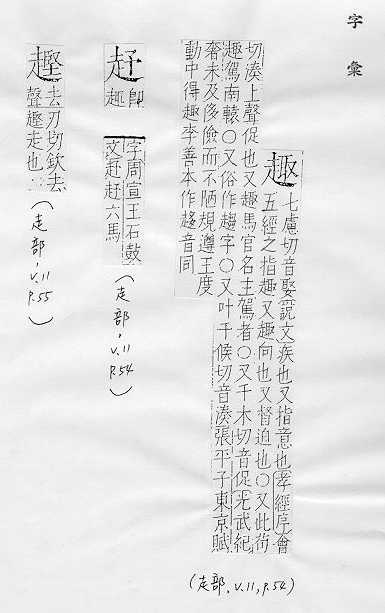 字彙
趣
七慮切音娶說文疾也又指意也孝經序會
五經之指趣又趣向也又督迫也○又此苟
切湊上聲促也又趣馬官名主駕者○又千木切音促光武紀
趣駕南轅○又俗作趨字○又叶千候切音湊張平子東京賦
奢未及侈儉而不陋規遵王度
動中得趣李善本作趨音同
(走部, V.11, P.54)
即
趣
字周宣王石鼓
文六馬
(走部, V.11 P.54)
去刃切欽去
聲趣走也
(走部, V.11 P.55)